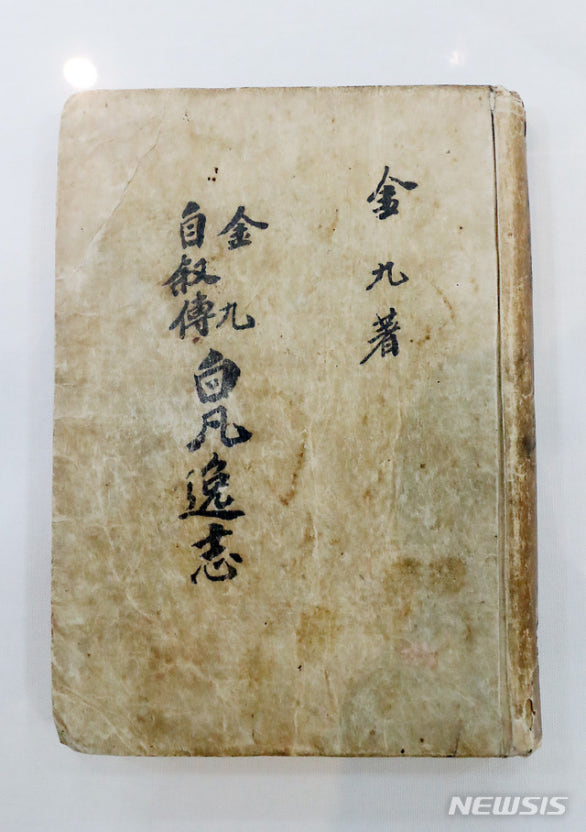 金九著
金九
自叙傳
白凡逸志
NEWSIS